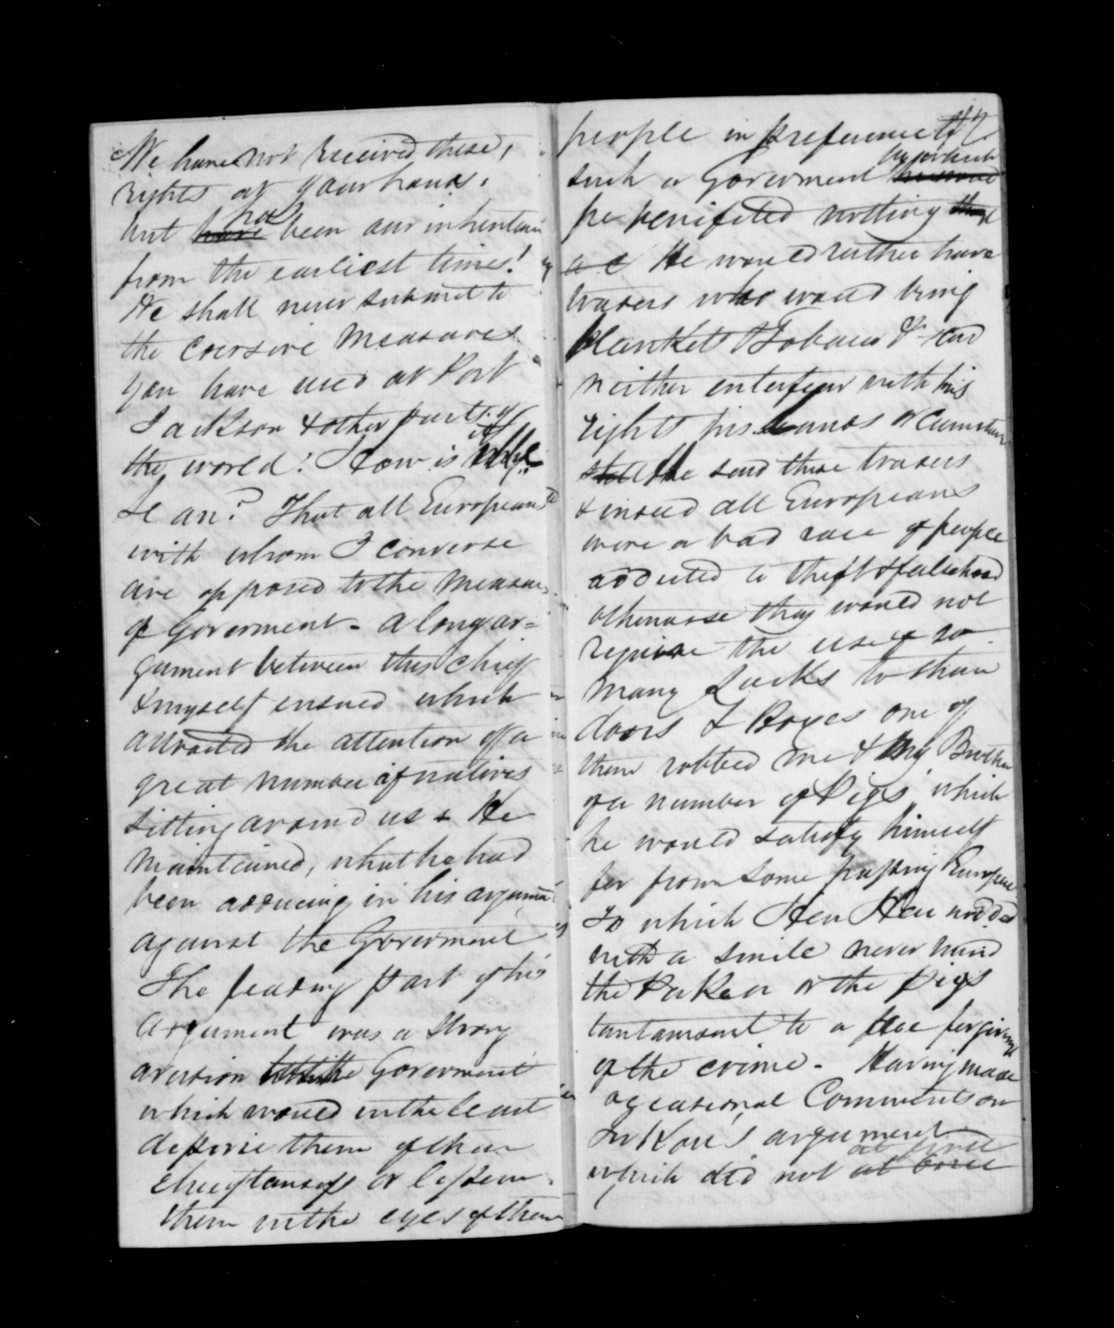 We have not received these,
rights at your hands.
but have has been our inheritan
from the earliest times!
We shall never submit to
the coersive measures
you have used at Port
Jackson & other parts of
the world: How is it
Se an? That all Europeans
with whom I converse
are opposed to the measure
of Goverment - a long ar=
gument between this chief
& myself ensued which
attracted the attention of a
great number of natives
sitting around us & He
maintained, what he had
been adducing in his argumen
against the Goverment
The leading part of his
argument was a strong
avertion to the Goverment
which would in the least
deprive them of their
chieftanship or lessen
them in the eyes of their
people in preference to
such a Goverment by which
he benifited nothing
He would rather have
traders who would bring
Blankets Tobacco & and
neither enterfear with his
rights his Lands or
he said these traders
& indeed all Europeans
were a bad race of people
addicted to theft & falsehood
otherwise they would not
require the use of so
many Locks to their
doors & Boxes one of
them robbed me & my Brother
of a number of Pigs which
he would satisfy himself
for from some passing Europea
To which Heu Heu nodded
with a smile never mind
the Pakea or the pigs
tantamount to a free forgiving
of the crime. Having made
occasional Comments on
argument
which did not at once